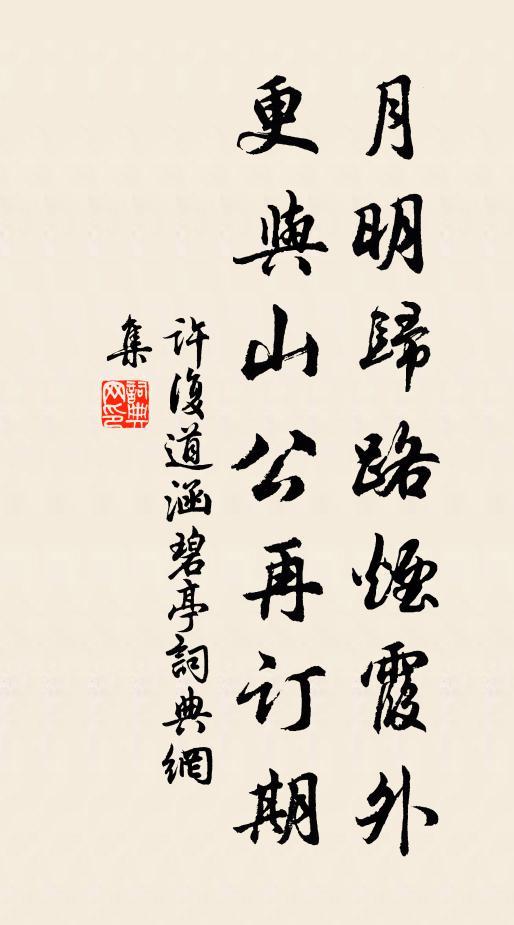 月明歸路煙霞外
更與山公再订期
許復道涵碧亭詞典網
集
詞典網印